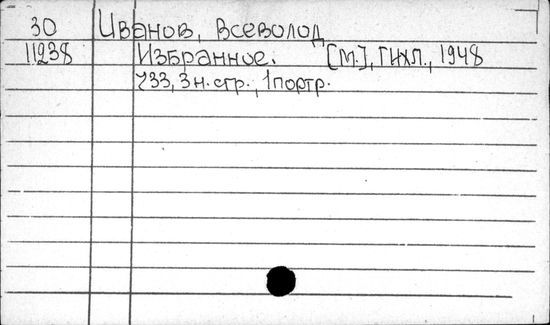 30 Иванов, Всеволод
11238 Избранное. [М.], ГИХЛ., 1948
733, 3 н. стр., 1 портр.